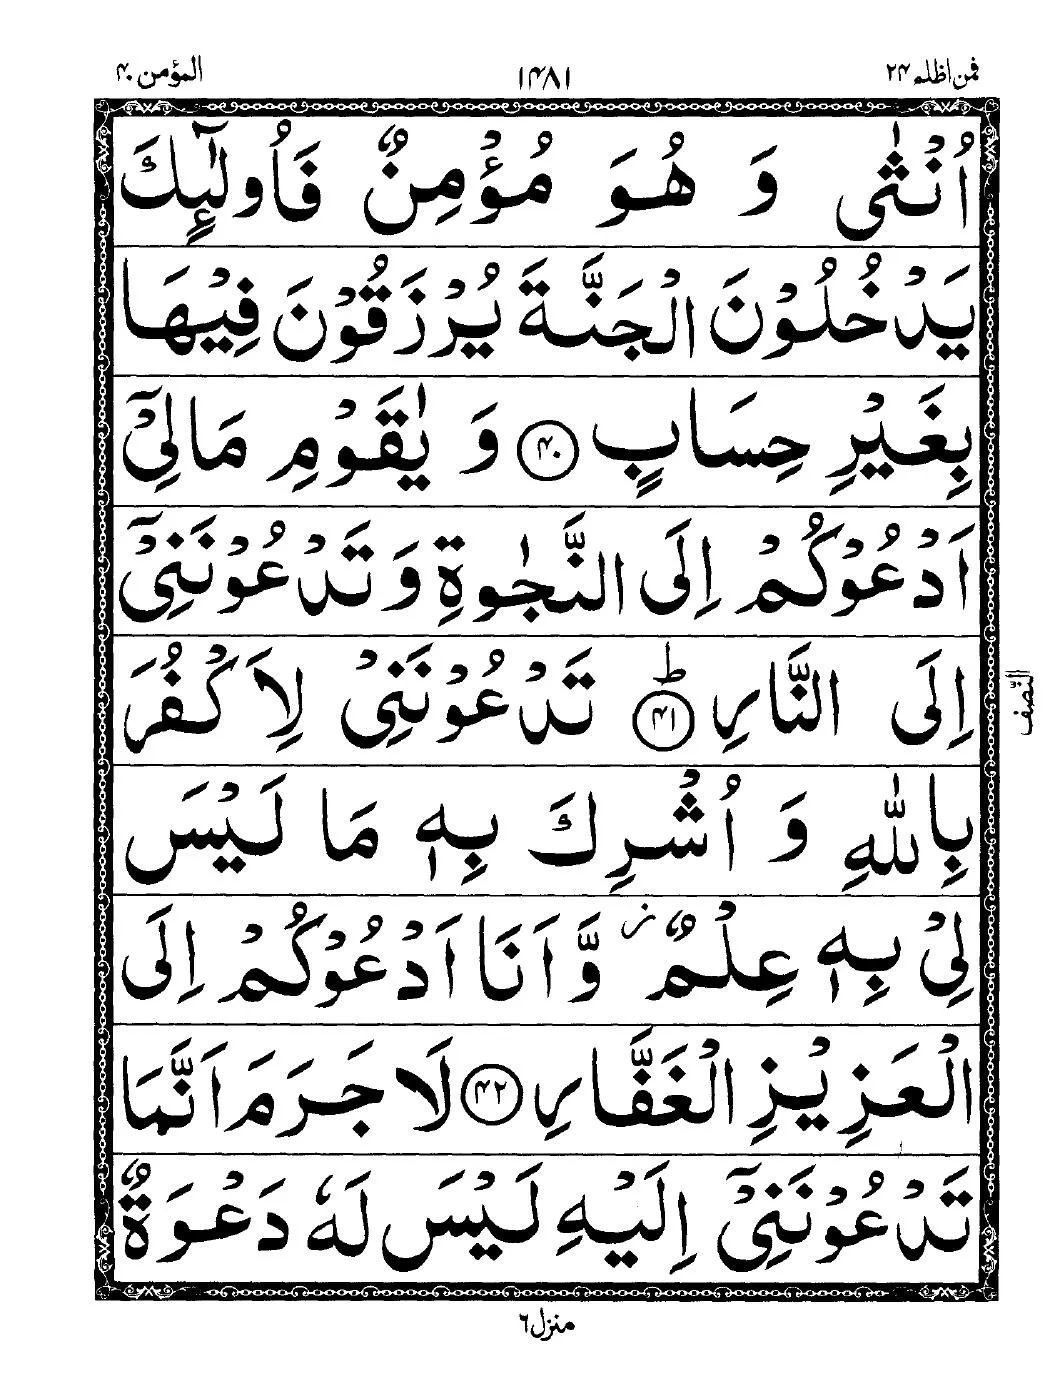 فمن اظلم ۲۴ ۱۴۸۱ المؤمن ۴۰
اُنْثٰى وَ هُوَ مُؤْمِنٌ فَاُولٰٓئِكَ
يَدْخُلُوْنَ الْجَنَّةَ يُرْزَقُوْنَ فِيْهَا
بِغَيْرِ حِسَابٍ ۴۰ وَ يٰقَوْمِ مَالِىْٓ
اَدْعُوْكُمْ اِلَى النَّجٰوةِ وَ تَدْعُوْنَنِىْٓ
اِلَى النَّارِ ؕ ۴۱ تَدْعُوْنَنِىْ لِاَكْفُرَ
بِاللّٰهِ وَ اُشْرِكَ بِهٖ مَا لَيْسَ
لِىْ بِهٖ عِلْمٌ ؗ وَّ اَنَا اَدْعُوْكُمْ اِلَى
الْعَزِيْزِ الْغَفَّارِ ۴۲ لَا جَرَمَ اَنَّمَا
تَدْعُوْنَنِىْٓ اِلَيْهِ لَيْسَ لَهٗ دَعْوَةٌ
النصف
منزل ۶